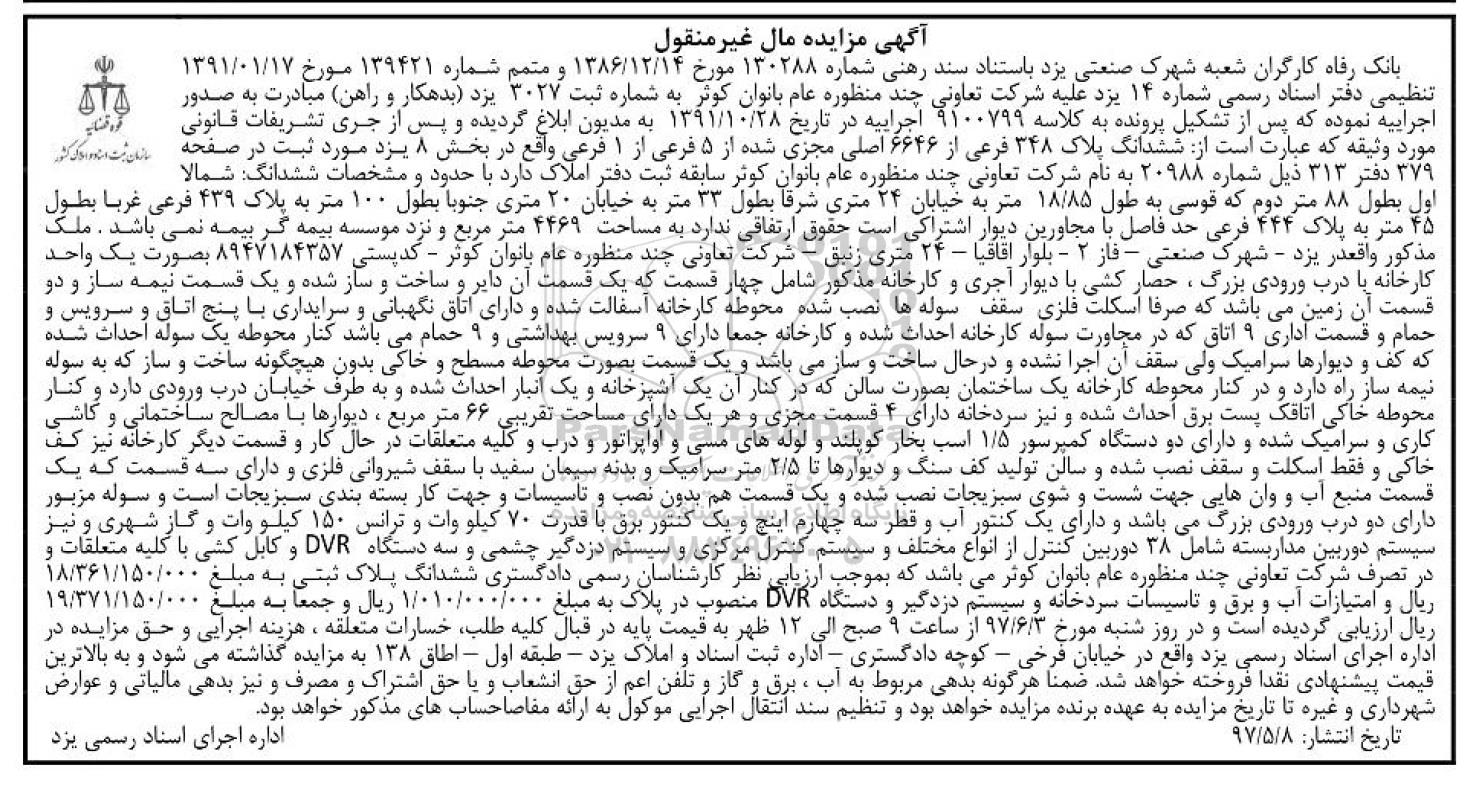 آگهی مزایده مال غیرمنقول
بانک رفاه کارگران شعبه شهرک صنعتی یزد باستناد سند رهنی شماره ۱۳۰۲۸۸ مورخ ۱۳۸۶/۱۲/۱۴ و متمم شماره ۱۳۹۴۲۱ مورخ ۱۳۹۱/۰۱/۱۷
تنظیمی دفتر اسناد رسمی شماره ۱۴ یزد علیه شرکت تعاونی چند منظوره عام بانوان کوثر به شماره ثبت ۳۰۲۷ یزد (بدهکار و راهن) مبادرت به صدور
اجراییه نموده که پس از تشکیل پرونده به کلاسه ۹۱۰۰۷۹۹ اجراییه در تاریخ ۱۳۹۱/۱۰/۲۸ به مدیون ابلاغ گردیده و پس از جری تشریفات قانونی
مورد وثیقه که عبارت است از: ششدانگ پلاک ۳۴۸ فرعی از ۶۶۴۶ اصلی مجزی شده از ۵ فرعی از ۱ فرعی واقع در بخش ۸ یزد مورد ثبت در صفحه
۳۷۹ دفتر ۳۱۳ ذیل شماره ۲۰۹۸۸ به نام شرکت تعاونی چند منظوره عام بانوان کوثر سابقه ثبت دفتر املاک دارد با حدود و مشخصات ششدانگ: شمالا
اول بطول ۸۸ متر دوم که قوسی به طول ۱۸/۸۵ متر به خیابان ۲۴ متری شرقا بطول ۳۳ متر به خیابان ۲۰ متری جنوبا بطول ۱۰۰ متر به پلاک ۴۳۹ فرعی غربا بطول
۴۵ متر به پلاک ۴۴۴ فرعی حد فاصل با مجاورین دیوار اشتراکی است حقوق ارتفاقی ندارد به مساحت ۴۴۶۹ متر مربع و نزد موسسه بیمه گر بیمه نمی باشد . ملک
مذکور واقعدر یزد - شهرک صنعتی – فاز ۲ - بلوار اقاقیا – ۲۴ متری زنبق – شرکت تعاونی چند منظوره عام بانوان کوثر - کدپستی ۸۹۴۷۱۸۴۳۵۷ بصورت یک واحد
کارخانه با درب ورودی بزرگ ، حصار کشی با دیوار آجری و کارخانه مذکور شامل چهار قسمت که یک قسمت آن دایر و ساخت و ساز شده و یک قسمت نیمه ساز و دو
قسمت آن زمین می باشد که صرفا اسکلت فلزی سقف سوله ها نصب شده محوطه کارخانه آسفالت شده و دارای اتاق نگهبانی و سرایداری با پنج اتاق و سرویس و
حمام و قسمت اداری ۹ اتاق که در مجاورت سوله کارخانه احداث شده و کارخانه جمعا دارای ۹ سرویس بهداشتی و ۹ حمام می باشد کنار محوطه یک سوله احداث شده
که کف و دیوارها سرامیک ولی سقف آن اجرا نشده و درحال ساخت و ساز می باشد و یک قسمت بصورت محوطه مسطح و خاکی بدون هیچگونه ساخت و ساز که به سوله
نیمه ساز راه دارد و در کنار محوطه کارخانه یک ساختمان بصورت سالن که در کنار آن یک آشپزخانه و یک انبار احداث شده و به طرف خیابان درب ورودی دارد و کنار
محوطه خاکی اتاقک پست برق احداث شده و نیز سردخانه دارای ۴ قسمت مجزی و هر یک دارای مساحت تقریبی ۶۶ متر مربع ، دیوارها با مصالح ساختمانی و کاشی
کاری و سرامیک شده و دارای دو دستگاه کمپرسور ۱/۵ اسب بخار کوپلند و لوله های مسی و اواپراتور و درب و کلیه متعلقات در حال کار و قسمت دیگر کارخانه نیز کف
خاکی و فقط اسکلت و سقف نصب شده و سالن تولید کف سنگ و دیوارها تا ۲/۵ متر سرامیک و بدنه سیمان سفید با سقف شیروانی فلزی و دارای سه قسمت که یک
قسمت منبع آب و وان هایی جهت شست و شوی سبزیجات نصب شده و یک قسمت هم بدون نصب و تاسیسات و جهت کار بسته بندی سبزیجات است و سوله مزبور
دارای دو درب ورودی بزرگ می باشد و دارای یک کنتور آب و قطر سه چهارم اینچ و یک کنتور برق با قدرت ۷۰ کیلو وات و ترانس ۱۵۰ کیلو وات و گاز شهری و نیز
سیستم دوربین مداربسته شامل ۳۸ دوربین کنترل از انواع مختلف و سیستم کنترل مرکزی و سیستم دزدگیر چشمی و سه دستگاه DVR و کابل کشی با کلیه متعلقات و
در تصرف شرکت تعاونی چند منظوره عام بانوان کوثر می باشد که بموجب ارزیابی نظر کارشناسان رسمی دادگستری ششدانگ پلاک ثبتی به مبلغ ۱۸/۳۶۱/۱۵۰/۰۰۰
ریال و امتیازات آب و برق و تاسیسات سردخانه و سیستم دزدگیر و دستگاه DVR منصوب در پلاک به مبلغ ۱/۰۱۰/۰۰۰/۰۰۰ ریال و جمعا به مبلغ ۱۹/۳۷۱/۱۵۰/۰۰۰
ریال ارزیابی گردیده است و در روز شنبه مورخ ۹۷/۶/۳ از ساعت ۹ صبح الی ۱۲ ظهر به قیمت پایه در قبال کلیه طلب، خسارات متعلقه ، هزینه اجرایی و حق مزایده در
اداره اجرای اسناد رسمی یزد واقع در خیابان فرخی – کوچه دادگستری – اداره ثبت اسناد و املاک یزد – طبقه اول – اطاق ۱۳۸ به مزایده گذاشته می شود و به بالاترین
قیمت پیشنهادی نقدا فروخته خواهد شد. ضمنا هرگونه بدهی مربوط به آب ، برق و گاز و تلفن اعم از حق انشعاب و یا حق اشتراک و مصرف و نیز بدهی مالیاتی و عوارض
شهرداری و غیره تا تاریخ مزایده به عهده برنده مزایده خواهد بود و تنظیم سند انتقال اجرایی موکول به ارائه مفاصاحساب های مذکور خواهد بود.
تاریخ انتشار: ۹۷/۵/۸
اداره اجرای اسناد رسمی یزد
قوه قضائیه
سازمان ثبت اسناد و املاک کشور
ParsNamadData
پایگاه اطلاع رسانی مناقصه و مزایده
۰۲۱-۸۸۳۴۹۶۷۰-۵